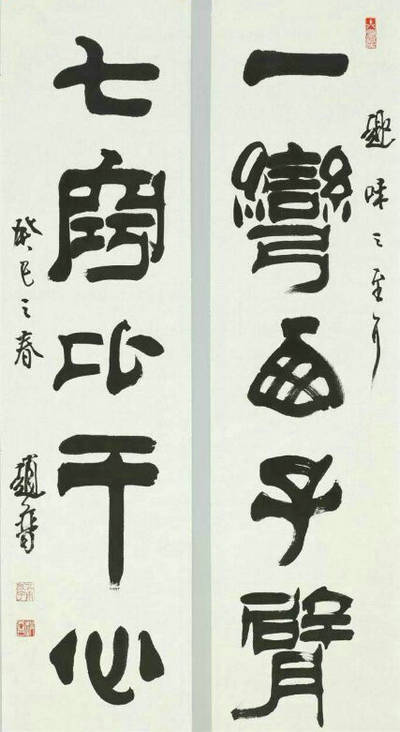 趣味之至
一彎西子臂
七竅比干心
癸巳之春